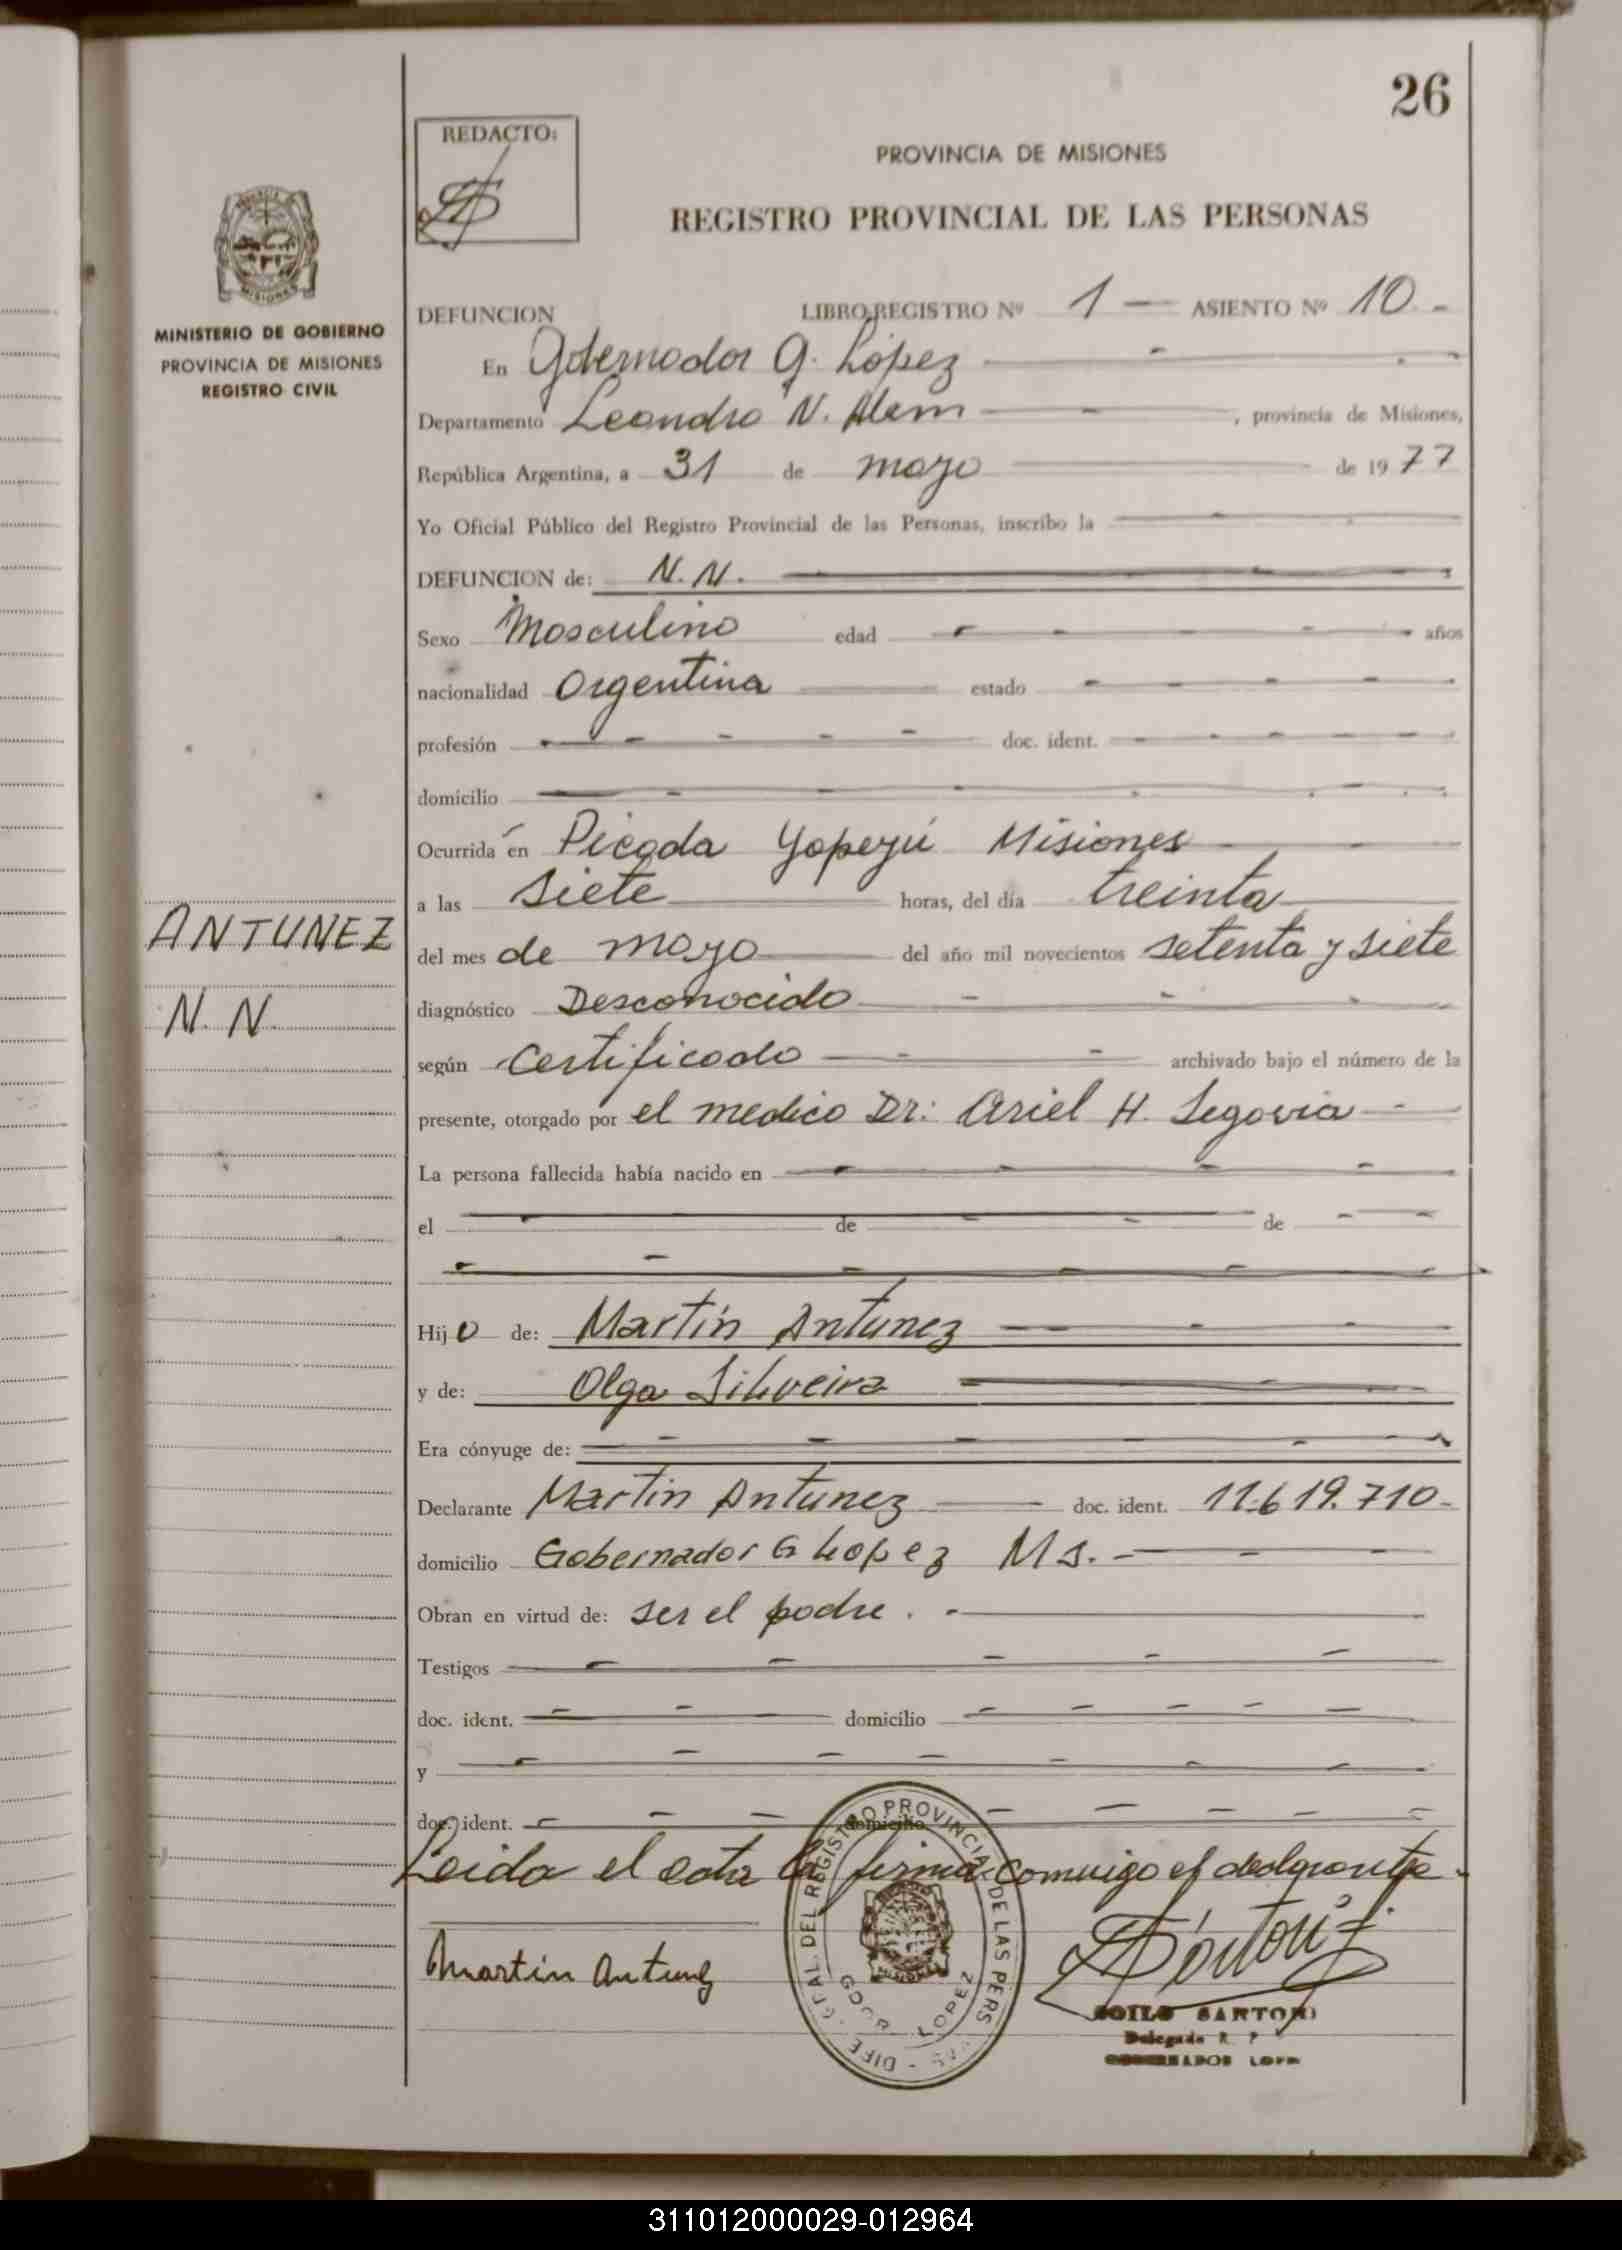 26
REDACTO:
PROVINCIA DE MISIONES
REGISTRO PROVINCIAL DE LAS PERSONAS
MISIONES
MINISTERIO DE GOBIERNO
PROVINCIA DE MISIONES
REGISTRO CIVIL
DEFUNCION LIBRO REGISTRO Nº 1 — ASIENTO Nº 10 -
En Gobernador G. López
Departamento Leandro N. Alem, provincia de Misiones,
República Argentina, a 31 de mayo de 1977
Yo Oficial Público del Registro Provincial de las Personas, inscribo la
DEFUNCION de: N.N.
Sexo Masculino edad años
nacionalidad Argentina estado
profesión doc. ident.
domicilio
Ocurrida en Picada Yapeyú Misiones
a las siete horas, del día treinta
ANTUNEZ
del mes de mayo del año mil novecientos setenta y siete
N. N.
diagnóstico Desconocido
según certificado archivado bajo el número de la
presente, otorgado por el medico Dr: Ariel H. Segovia
La persona fallecida había nacido en
el de de
Hijo de: Martín Antunez
y de: Olga Silveira
Era cónyuge de:
Declarante Martin Antunez doc. ident. 11.619.710-
domicilio Gobernador G Lopez Ms.
Obran en virtud de: ser el padre.
Testigos
doc. ident. domicilio
y
doc. ident. domicilio
Leida el acta la firma comigo el declarante
martin antunez
REGISTRO PROVINCIAL DE LAS PERS
GDOR. LOPEZ
SARTORI
Delegado R. P
GOBERNADOR LOPEZ
311012000029-012964